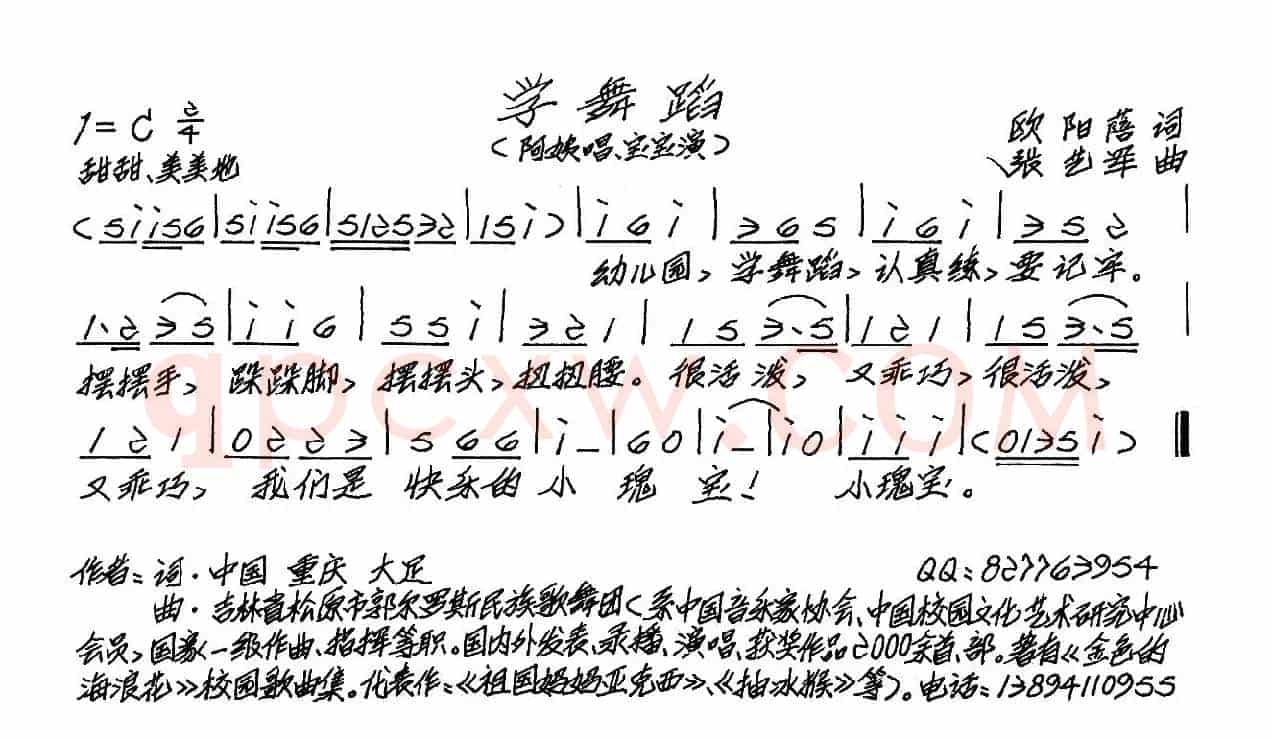 学舞蹈
(阿姨唱、宝宝演)
1=C 2/4
甜甜、美美地
欧阳蓓 词
张艺军 曲
(5i i56|5i i56|5125 32|15 i)|i 6 i|3 6 5|i 6 i|3 5 2|
幼儿园,学舞蹈,认真练,要记牢。
1、2 3 5|i i 6|5 5 i|3 2 1|1 5 3、5|1 2 1|1 5 3、5|
摆摆手,跺跺脚,摆摆头,扭扭腰。很活泼,又乖巧,很活泼,
1 2 1|0 2 2 3|5 6 6|i -|6 0|i -|i 0|i i i|(0135 i)‖
又乖巧,我们是 快乐的 小 瑰 宝! 小瑰宝。
qpcxw.com
作者:词·中国 重庆 大足 QQ:827763954
曲·吉林省松原市郭尔罗斯民族歌舞团(系中国音乐家协会、中国校园文化艺术研究中心
会员,国家一级作曲、指挥等职。国内外发表、录播、演唱、获奖作品2000余首、部。著有《金色的
海浪花》校园歌曲集。代表作:《祖国妈妈亚克西》、《抽冰猴》等)。电话:13894110955